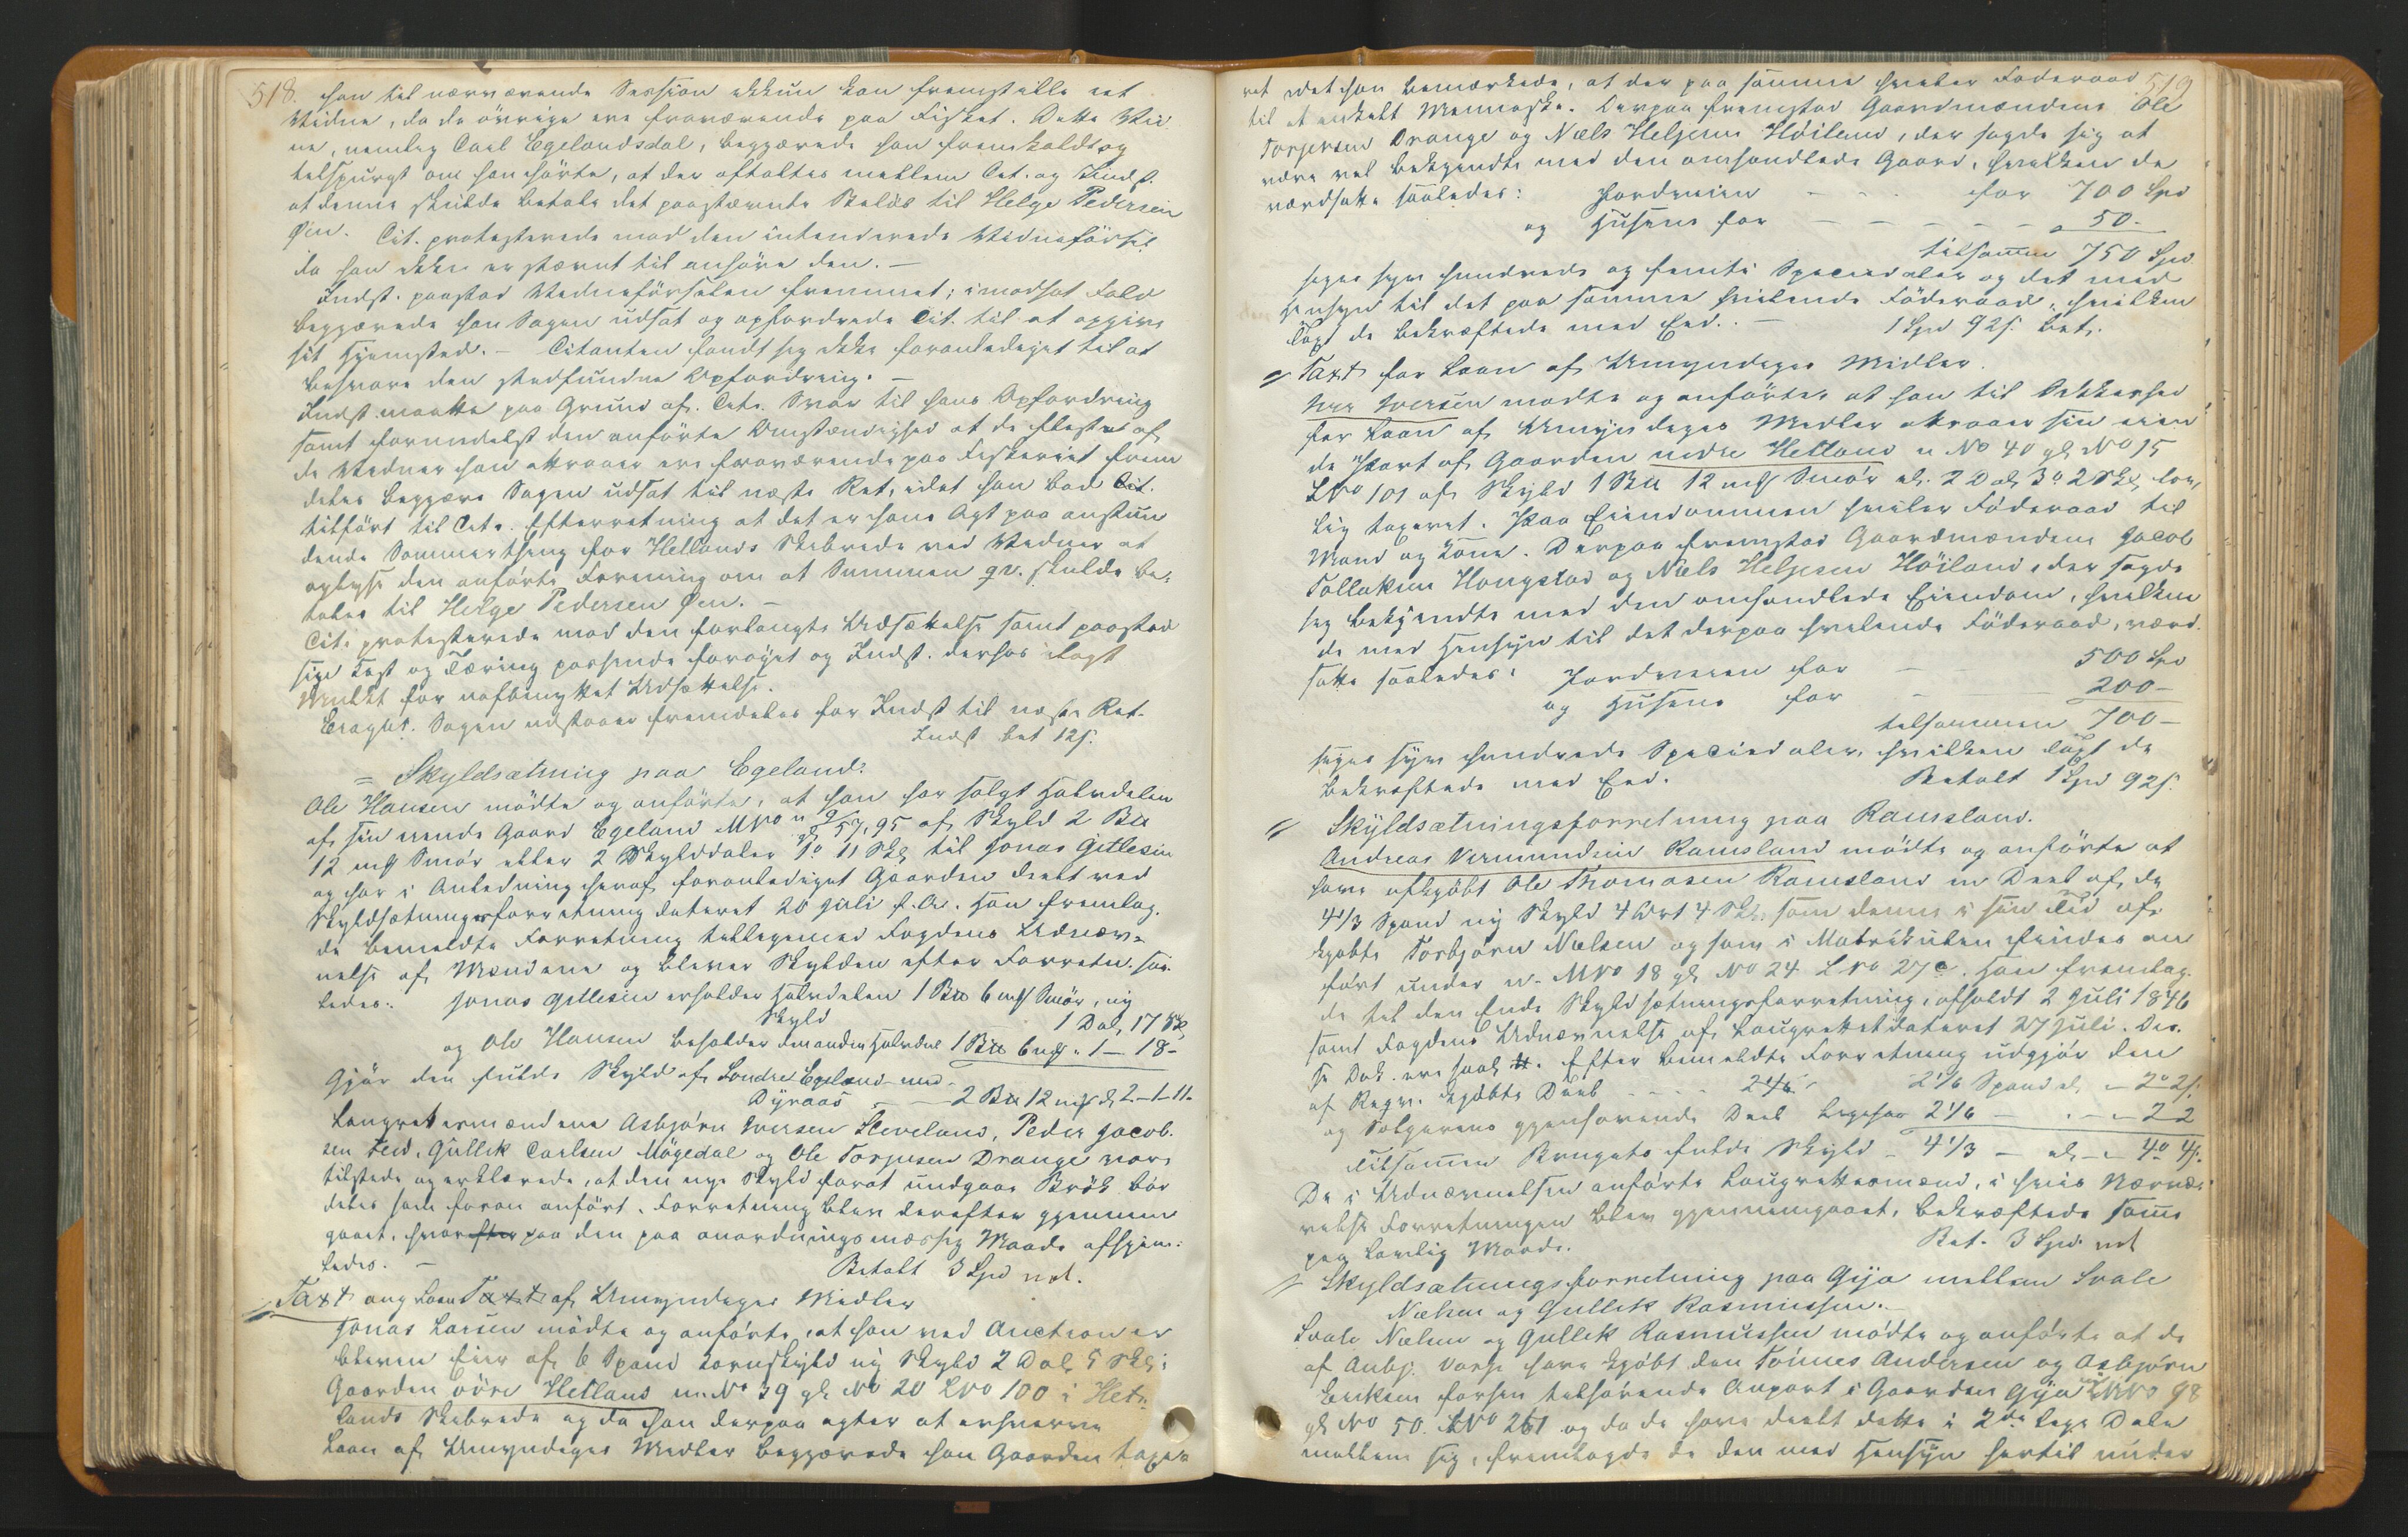 518. han til nærværende Session ikkun kan fremstille eet
Vidne, da de övrige ere fraværende paa Fisket. Dette Vid
ne, nemlig Carl Egelandsdal, begjærede han fremkaldt og
tilspurgt om han hörte, at der aftaltes mellem Cit. og Indst.
at denne skulde betale det paastævnte Beløb til Helge Pedersen
Øen. Cit. protesterede mod den intenderede Vidneförsel
da han ikke er stævnt til anhöre den. –
Indst. paastod Vidneförselen fremmet; i modsat Fald
begjærede han Sagen udsat og opfordrede Cit. til at opgive
sit Hjemsted. – Citanten fandt sig ikke foranlediget til at
besvare den stedfundne Opfordring. –
Indst. maatte paa Grund af Cits. Svar til hans Opfordring
samt formedelst den anförte Omstændighed at de fleste af
de Vidner han attraaer ere fraværende paa Fiskeriet frem
deles begjære Sagen udsat til næste Ret, idet han bad Cit.
tilfört til Cits. Efterretning at det er hans Agt paa anstun
dende Sommerthing for Hetlands Skibrede ved Vidner at
oplyse den anförte Forening om at Summen qv. skulde be,
tales til Helge Pedersen Øen. –
Cit. protesterede mod den forlangte Udsættelse samt paastod
sin Kost og Tæring passende foröget og Indst. derhos ilagt
Mulkt for uafbenyttet Udsættelse.
Eragtet. Sagen udstaaer fremdeles for Indst til næste Ret.
Indst bet 12 s.
= Skyldsætning paa Egeland.
Ole Hansen mödte og anförte, at han har solgt Halvdelen
af sin eiende Gaard Egeland MNo n 9/ gl 57, 95 af Skyld 2 Bu
12 mk Smör eller 2 Skylddaler 1o 11 Sk til Jonas Gitlesen
og har i Anledning heraf foranlediget Gaarden deelt ved
Skyldsætningsforretning dateret 20 Juli f. A. Han fremlag,
de bemeldte Forretning tilligemed Fogdens Udnæv-
nelse af Mændene og blever Skylden efter Forretn. saa
ledes: Jonas Gitlesen erholder Halvdelen 1 Bu 6 mk Smör, ny
Skyld 1 Dal, 17 Sk
og Ole Hansen beholder den anden Halvdeel 1 Bu 6 mk " 1 – 18 –
Gjör den fulde Skyld af Söndre Egeland med
Dyraas – – 2 Bu 12 mk el 2 – 1 – 11.
Laugrettesmændene Asbjörn Iversen Sleveland, Peder Jacob.
sen Eeid, Gullik Carlsen Mögedal og Ole Torjusen Drange vare
tilstede og erklærede, at den nye Skyld forat undgaae Brök bör
deles som foran anfört. Forretning blev derefter gjennem
gaaet, hvorefter paa den paa anordningsmæssig Maade afhjem.
ledes. – Betalt 3 Spd not.
Taxt ang Laan Taxt af Umyndiges Midler
Jonas Larsen mödte og anförte, at han ved Auction er
bleven Eier af 6 Spand Kornskyld ny Skyld 2 Dal 5 Sk i
Gaarden övre Hetland nn No 39 gl No 20 LNo 100 i Het=
lands Skibrede og da han derpaa agter at erhverve
Laan af Umyndiges Midler begjærede han Gaarden taxe=
519
ret idet han bemærkede, at der paa samme hviler Föderaad
til et enkelt Menneske. Derpaa fremstod Gaardmændene Ole
Torjersen Drange og Niels Helgesen Höiland, der sagde sig at
være vel bekjendte med den omhandlede Gaard, hvilken de
værdsatte saaledes: Jordveien – – for 700 Spd
og Husene for – – – – – 50 –
tilsammen 750 Spd
siger syv hundrede og femti Speciedaler og det med
Hensyn til det paa samme hvilende Föderaad, hvilken
Taxt de bekræftede med Eed. – 1 Spd 92 s. bet.
Taxt for Laan af Umyndiges Midler.
Iver Iversen mödte og anförte, at han til Sikkerhed
for Laan af Umyndiges Midler attraaer sin eien
de Part af Gaarden nedre Hetland n No 40 gl No 15
LNo 101 af Skyld 1 Bu 12 mk Smör el. 2 Dal 3o 2 Sk lov,
lig taxeret. Paa Eiendommen hviler Föderaad til
Mand og Kone. Derpaa fremstod Gaardmændene Jacob
Tollaksen Hougstad og Niels Helgesen Höiland, der sagde
sig bekjendte med den omhandlede Eiendom, hvilken
de med Hensyn til det derpaa hvilende Föderaad, værd.
satte saaledes: Jordveien for – – 500 Spd
og Husene for – – 200 –
tilsammen 700 –
siger syv hundrede Speciedaler, hvilken Taxt de
bekræftede med Eed. Betalt 1 Spd 92 s.
Skyldsætningsforretning paa Ramsland.
Andreas Vermundsen Ramsland mödte og anförte at
have afkjöbt Ole Thomasen Ramsland en Deel af de
4 1/3 Spand ny Skyld 4 Ort 4 Sk, som denne i sin Tid af,
kjöbte Torbjörn Nielsen og som i Matrikulen findes an
fört under n. MNo 18 gl No 24 LNo 27 c. Han fremlag.
de til den Ende Skyldsætningsforretning, afholdt 2 Juli 1846
samt Fogdens Udnævnelse af Laugrettet dateret 27 Juli. Dis.
se Dok. ere saal. tt. Efter bemeldte Forretning udgjör den
af Reqv. kjöbte Deel – – – 2 1/6 Spand el – 2o 2 s.
og Sælgerens gjenhavende Deel ligesaa 2 1/6 – – – 2 2
Tilsammen Brugets fulde Skyld – 4 1/3 – el – 4o 4 s.
De i Udnævnelsen anförte Laugrettesmænd, i hvis Nærvæ
relse Forretningen blev gjennemgaaet, bekræftede samme
paa lovlig Maade. Bet. 3 Spd. not
Skyldsætningsforretning paa Gya mellem Svale
Nielsen og Gullik Rasmussen. –
Svale Nielsen og Gullik Rasmussen mödte og anförte at de
af have kjöbt den Tönnes Andersen og Asbjörn
Eriksen forhen tilhörende Anpart i Gaarden Gya MNo 98
gl No 50. LNo 261 og da de have deelt dette i 2de lige Dele
mellem sig, fremlagde de den med Hensyn hertil under